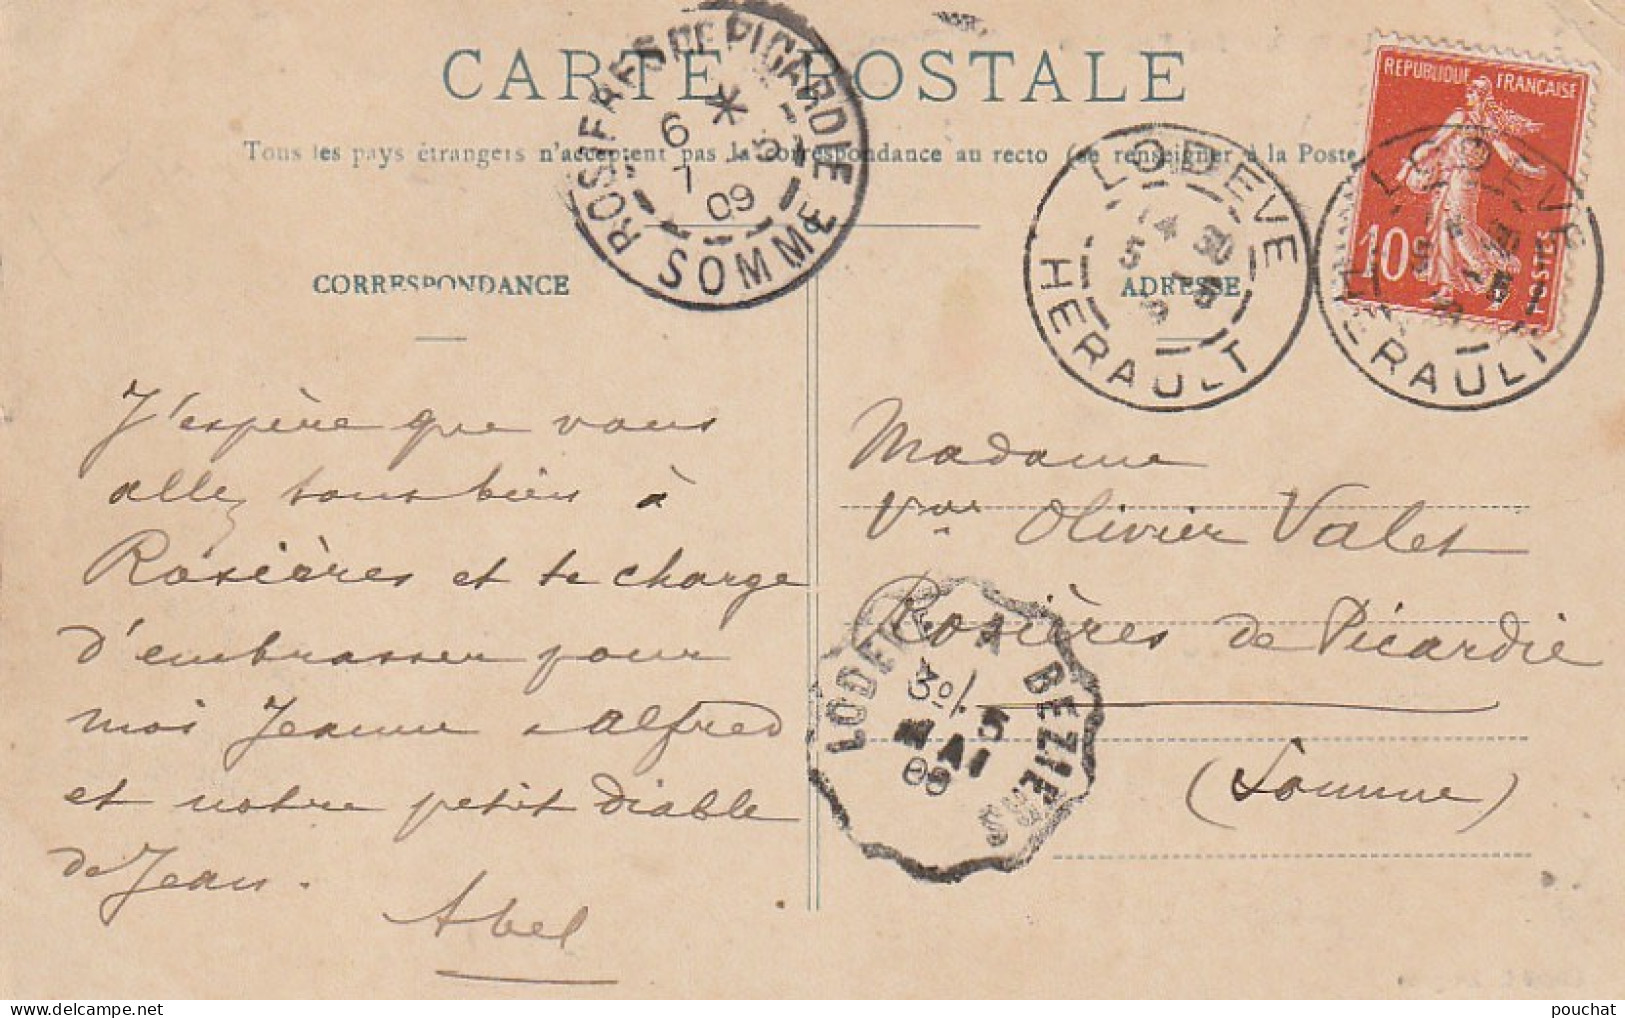 CARTE POSTALE
Tous les pays étrangers n'acceptent pas la correspondance au recto (se renseigner à la Poste
CORRESPONDANCE
ADRESSE
ROSIÈRES DE PICARDIE
6 * 5
7 09
SOMME
LODEVE
14 30
5 5
9
HERAULT
REPUBLIQUE FRANÇAISE
10c POSTES
LODEVE
HERAULT
J'espère que vous
allez tous bien à
Rosières et te charge
d'embrasser pour
moi Jeanne Alfred
et notre petit Diable
de Jean.
Abel
Madame
Vve Olivier Valet
Rosières de Picardie
(Somme)
LODEVE A BEZIERS
5
MAI
09
pouchat